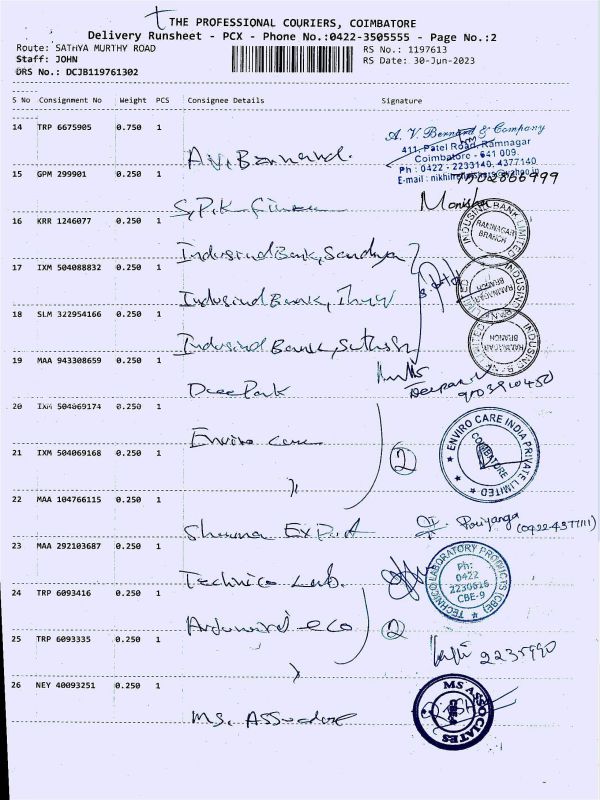 THE PROFESSIONAL COURIERS, COIMBATORE
Delivery Runsheet - PCX - Phone No.:0422-3505555 - Page No.:2
Route: SATHYA MURTHY ROAD RS No.: 1197613
Staff: JOHN RS Date: 30-Jun-2023
DRS No.: DCJB119761302
S No Consignment No Weight PCS Consignee Details Signature
14 TRP 6675905 0.750 1
A.V. Bernard & Company
411, Patel Road, Ramnagar
Coimbatore - 641 009.
Ph : 0422 - 2233140, 4377140
15 GPM 299901 0.250 1
Monisha
16 KRR 1246077 0.250 1
IndusindBank, Sandhya
INDUSIND BANK LIMITED
RAMNAGAR BRANCH
17 IXM 504088832 0.250 1
Indusind Bank,
INDUSIND BANK
RAMNAGAR BRANCH
18 SLM 322954166 0.250 1
Indusind Bank, Sathish
INDUSIND BANK LIMITED
RAMNAGAR BRANCH
19 MAA 943308659 0.250 1
Deepak
20 IXM 504069174 0.250 1
Enviro care
2
ENVIRO CARE INDIA PRIVATE LIMITED
COIMBATORE
21 IXM 504069168 0.250 1
22 MAA 104766115 0.250 1
Sharma Export
(0422-4377111)
23 MAA 292103687 0.250 1
Technico Lab.
TECHNICO LABORATORY PRODUCTS (CBE)
Ph:
0422
2230616
CBE-9
24 TRP 6093416 0.250 1
eco
2
25 TRP 6093335 0.250 1
2235990
26 NEY 40093251 0.250 1
MS. Associate
MS ASSOCIATES